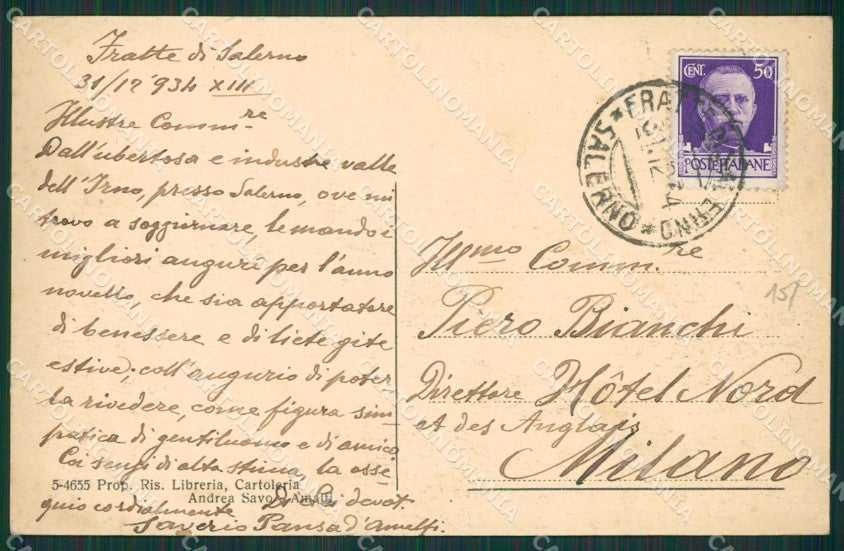 Fratte di Salerno
31/12 934 XIII
Illustre Comm.re
Dall'ubertosa e industre valle
dell'Irno, presso Salerno, ove mi
trovo a soggiornare, le mando i
migliori auguri per l'anno
novello, che sia apportatore
di benessere e di liete gite
estive; coll'augurio di poter
la rivedere, come figura sim
patica di gentiluomo e di amico
Coi sensi di alta stima, la osse
quio cordialmente Di Lei devot.
Saverio Pansa d'Amalfi.
5-4655 Prop. Ris. Libreria, Cartoleria
Andrea Savo - Amalfi
CENT. 50
POSTE ITALIANE
FRATTE DI SALERNO
SALERNO
Ill.mo Comm.re
Piero Bianchi
Direttore Hôtel Nord
et des Anglais
Milano
15/
CARTOLINOMANIA